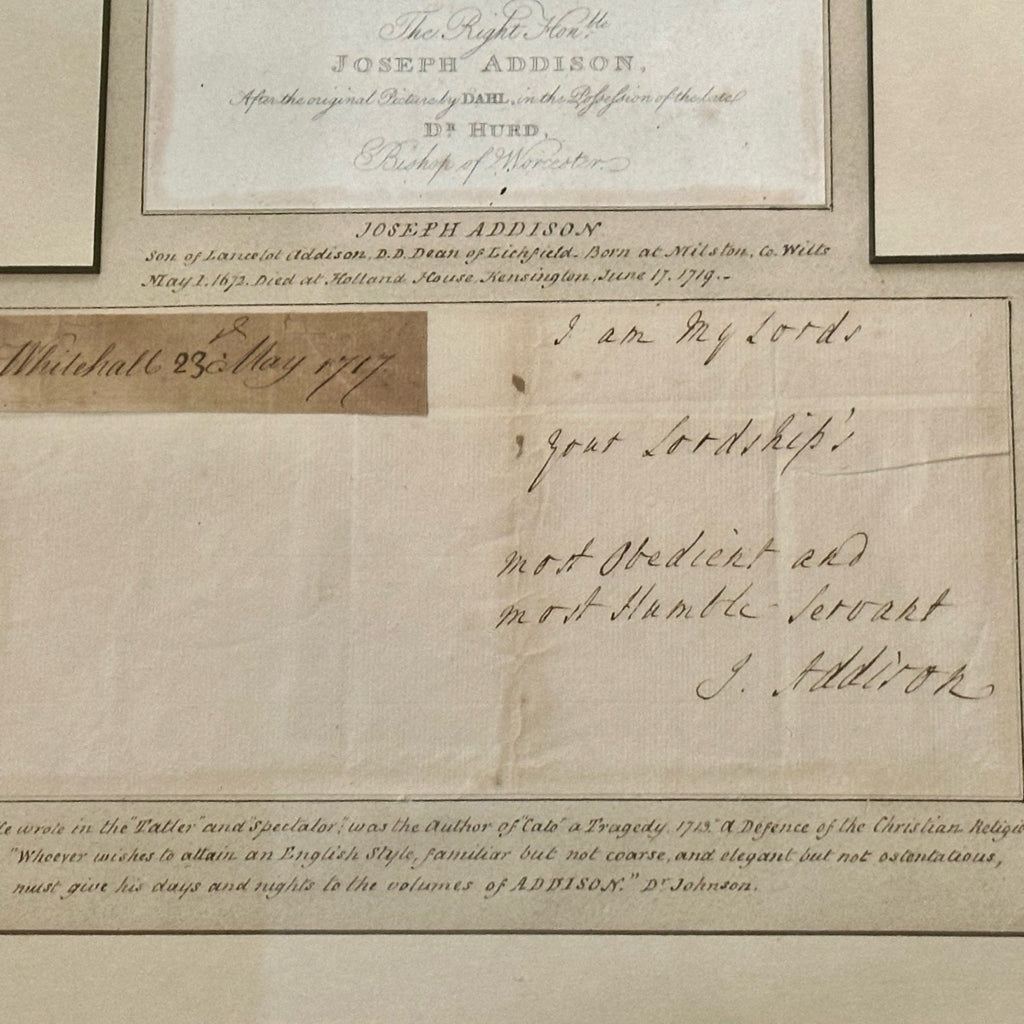 The Right Hon.ble
JOSEPH ADDISON,
After the original Picture by DAHL, in the Possession of the late
DR HURD,
Bishop of Worcester.
JOSEPH ADDISON
Son of Lancelot Addison, D.D. Dean of Lichfield. Born at Milston, Co. Wilts
May 1. 1672. Died at Holland House, Kensington, June 17. 1719.-
Whitehall 23d May 1717.
I am My Lords
your Lordship's
most Obedient and
most Humble Servant
J. Addison
wrote in the "Tatler" and Spectator", was the Author of "Cato" a Tragedy, 1713. "A Defence of the Christian Religio
"Whoever wishes to attain an English Style, familiar but not coarse, and elegant but not ostentatious,
must give his days and nights to the volumes of ADDISON." Dr Johnson.